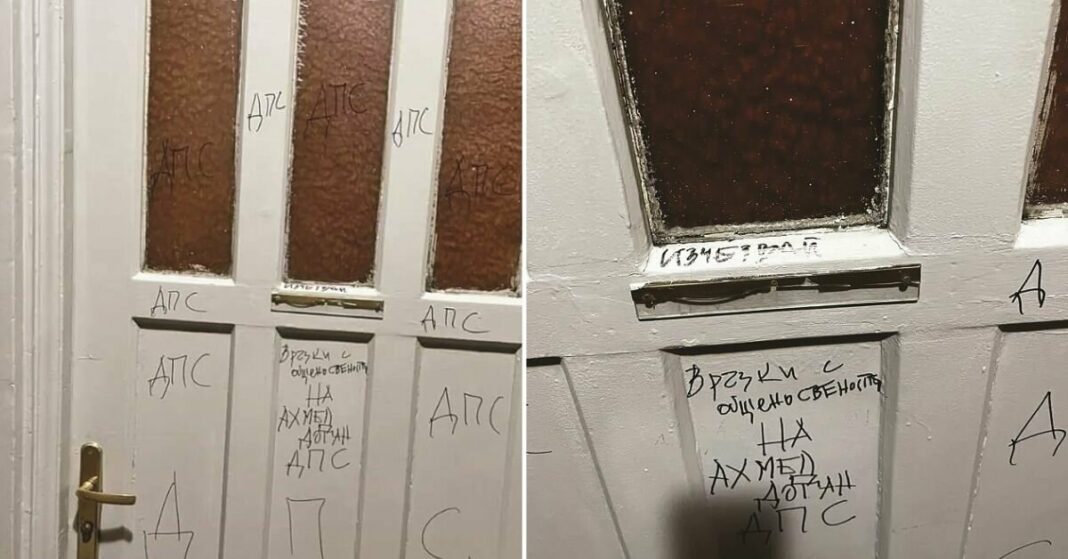 ДПС
ДПС
ДПС
ДПС
ДПС
ДПС
ДПС
ДПС
ДПС
Връзки с
общено СВЕНОСТТА
НА
АХМЕД
ДОГАН
ДПС
Д П С
ИЗЧЕЗВАЙ
Д
Връзки с
общено СВЕНОСТТА
НА
АХМЕД
ДОГАН
ДПС
Д